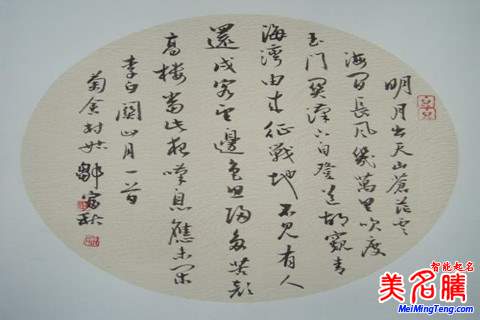 明月出天山蒼茫雲
海間長風幾萬里吹度
玉門關漢下白登道胡窺青
海灣由來征戰地不見有人
還戍客望邊色思歸多苦顏
高樓當此夜嘆息應未閑
李白關山月一首
智能起名
美名腾
MeiMingTeng.com